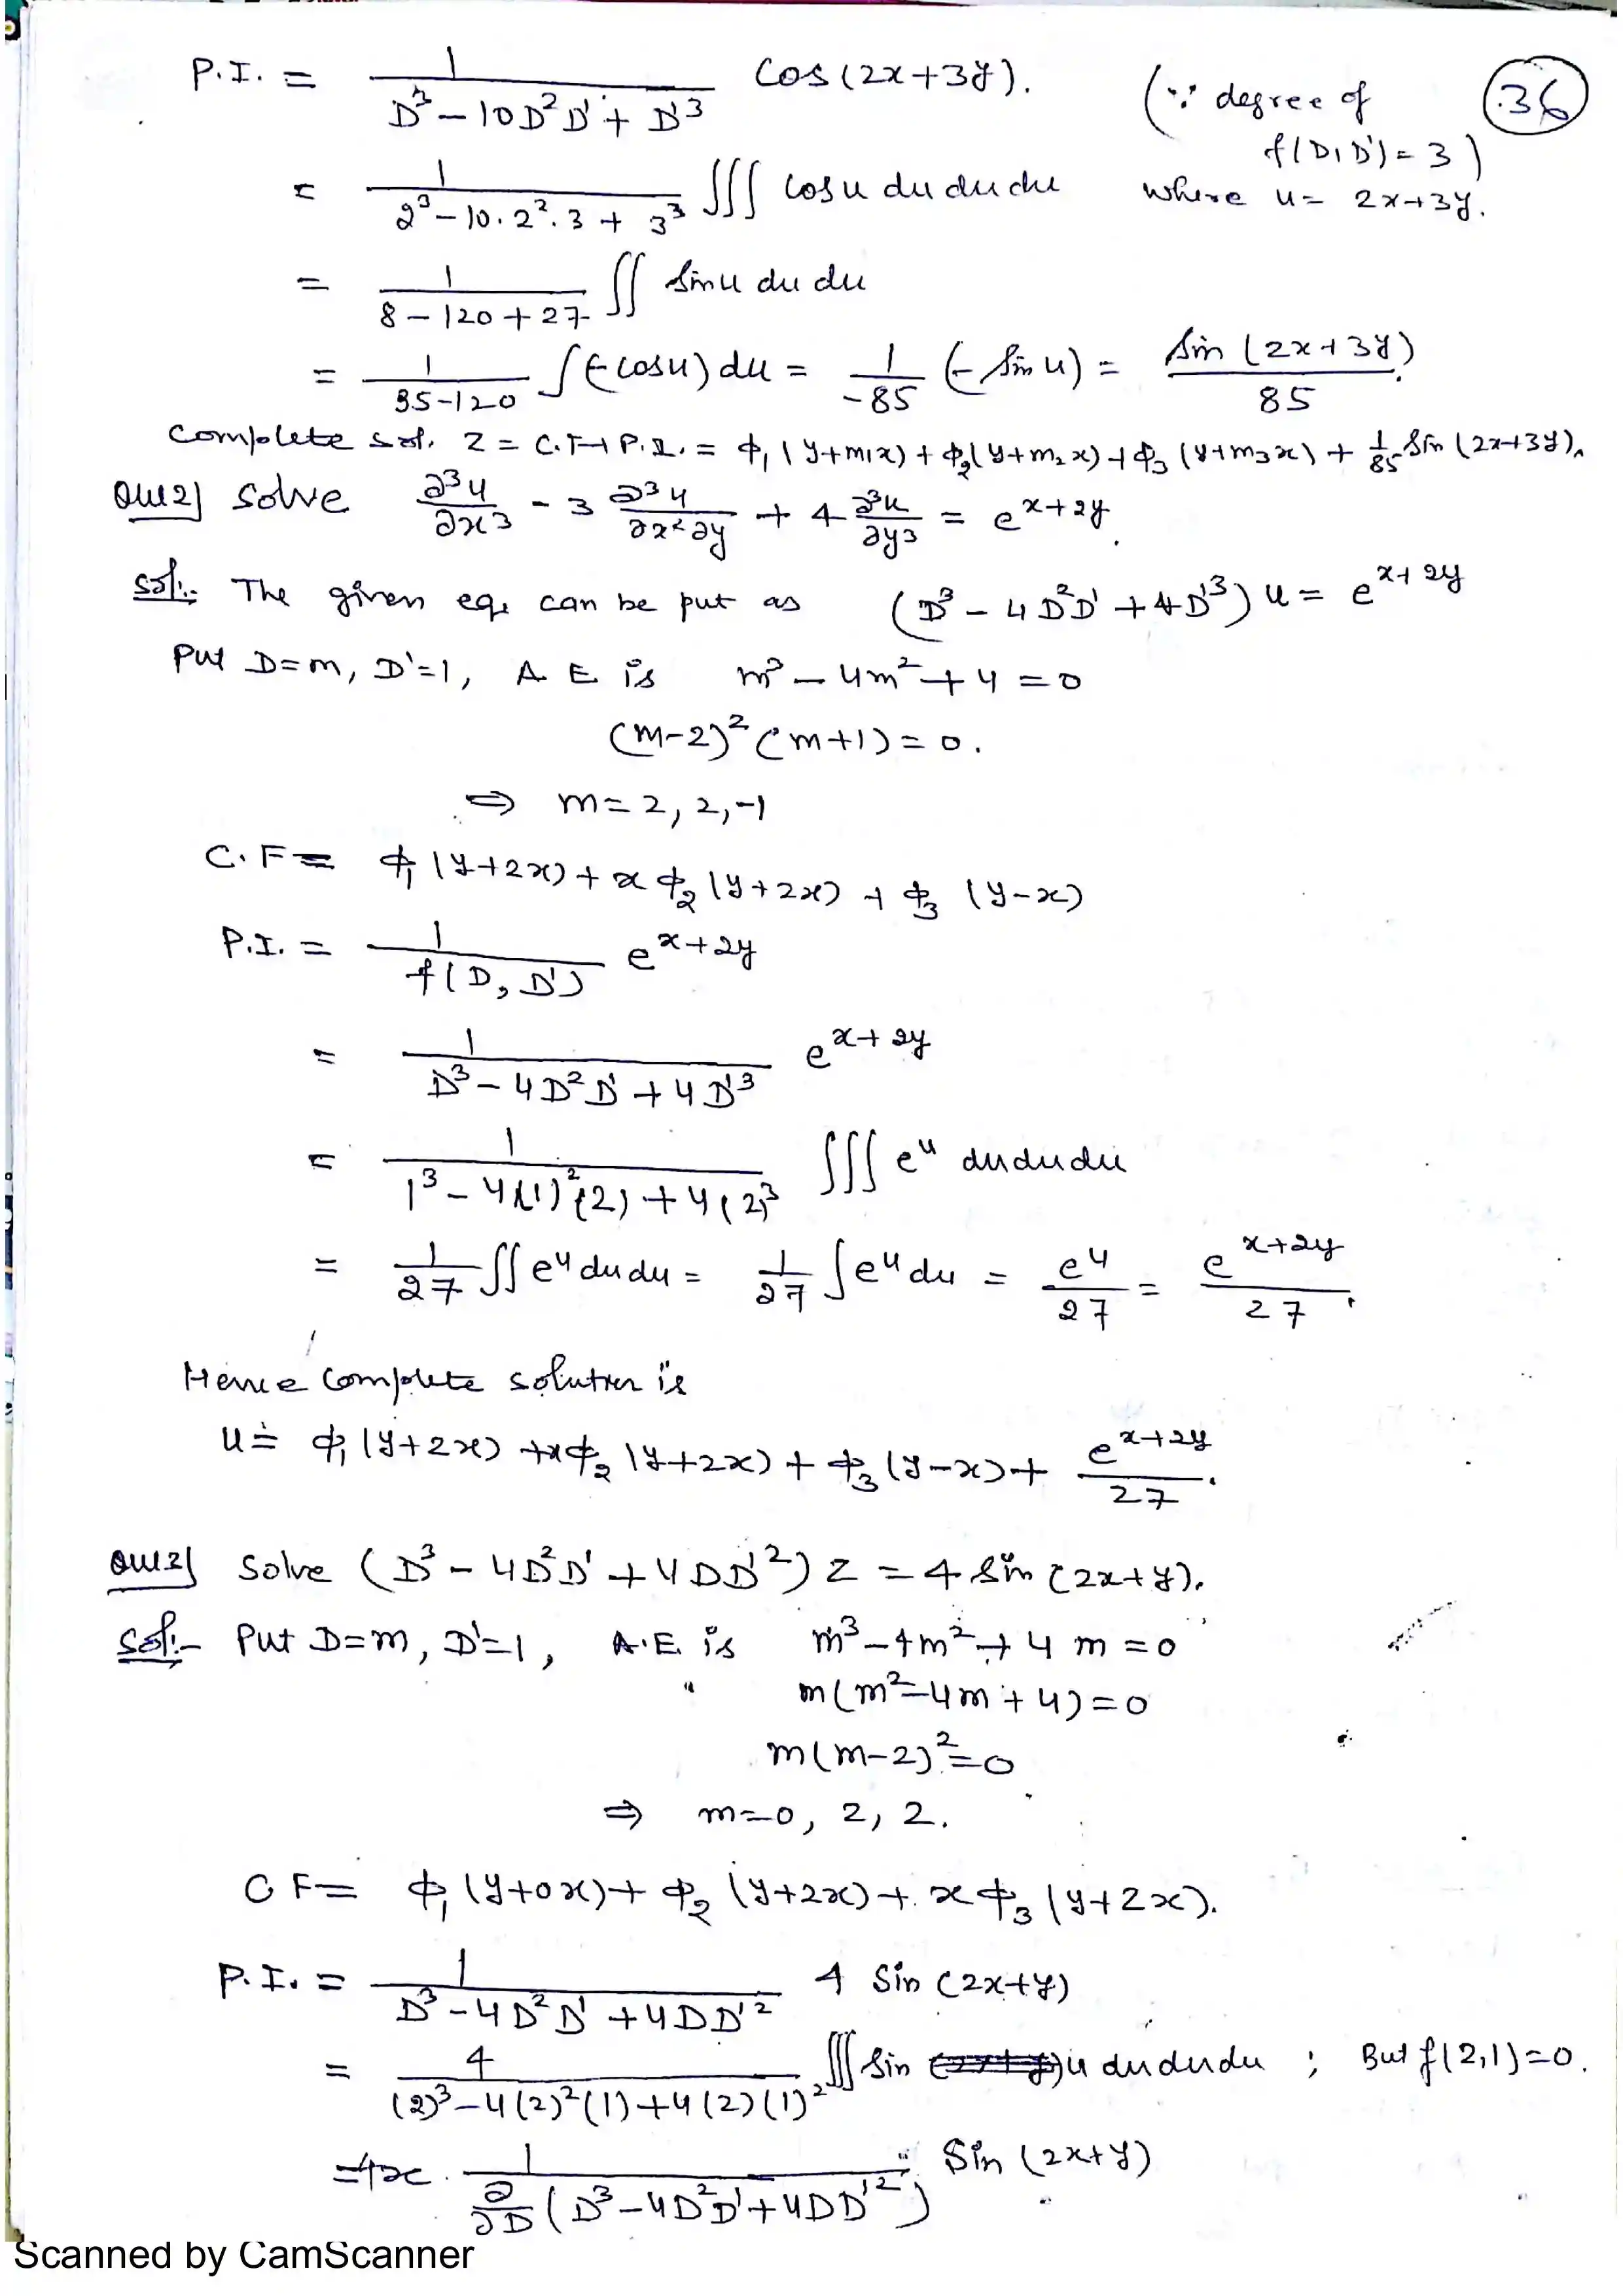 P.I. = 1/(D³ – 10D²D' + D'³) Cos (2x+3y). (∵ degree of (36)
f(D, D') = 3)
= 1/(2³ – 10.2².3 + 3³) ∭ cos u du du du where u = 2x+3y.
= 1/(8 – 120 + 27) ∬ sin u du du
= 1/(35–120) ∫(–cos u) du = 1/–85 (– sin u) = sin (2x+3y)/85.
Complete sol. Z = C.F + P.I. = ϕ₁ (y+m₁x) + ϕ₂(y+m₂x) + ϕ₃ (y+m₃x) + 1/85 sin (2x+3y).
Que 2] Solve ∂³u/∂x³ - 3 ∂³u/∂x²∂y + 4 ∂³u/∂y³ = e^(x+2y).
Sol:- The given eq. can be put as (D³ – 4D²D' + 4D'³) u = e^(x+2y)
Put D=m, D'=1, A E is m³ – 4m² + 4 = 0
(m–2)² (m+1) = 0.
⇒ m = 2, 2, –1
C.F = ϕ₁ (y+2x) + x ϕ₂ (y+2x) + ϕ₃ (y–x)
P.I. = 1/f(D, D') e^(x+2y)
= 1/(D³ – 4D²D' + 4D'³) e^(x+2y)
= 1/(1³ – 4(1)²(2) + 4(2)³) ∭ e^u du du du
= 1/27 ∬ e^u du du = 1/27 ∫ e^u du = e^u/27 = e^(x+2y)/27.
Hence Complete solution is
u = ϕ₁ (y+2x) + xϕ₂ (y+2x) + ϕ₃ (y–x) + e^(x+2y)/27.
Que 3] Solve (D³ – 4D²D' + 4DD'²) Z = 4 Sin (2x+y).
Sol:- Put D=m, D'=1, A.E. is m³ – 4m² + 4m = 0
m(m² – 4m + 4) = 0
m(m–2)² = 0
⇒ m=0, 2, 2.
C F = ϕ₁ (y+0x) + ϕ₂ (y+2x) + x ϕ₃ (y+2x).
P.I. = 1/(D³ – 4D²D' + 4DD'²) 4 Sin (2x+y)
= 4/((2)³ – 4(2)²(1) + 4(2)(1)²) ∭ Sin u du du du ; But f(2,1)=0.
= 4x . 1/(∂/∂D (D³ – 4D²D' + 4DD'²)) Sin (2x+y)
Scanned by CamScanner